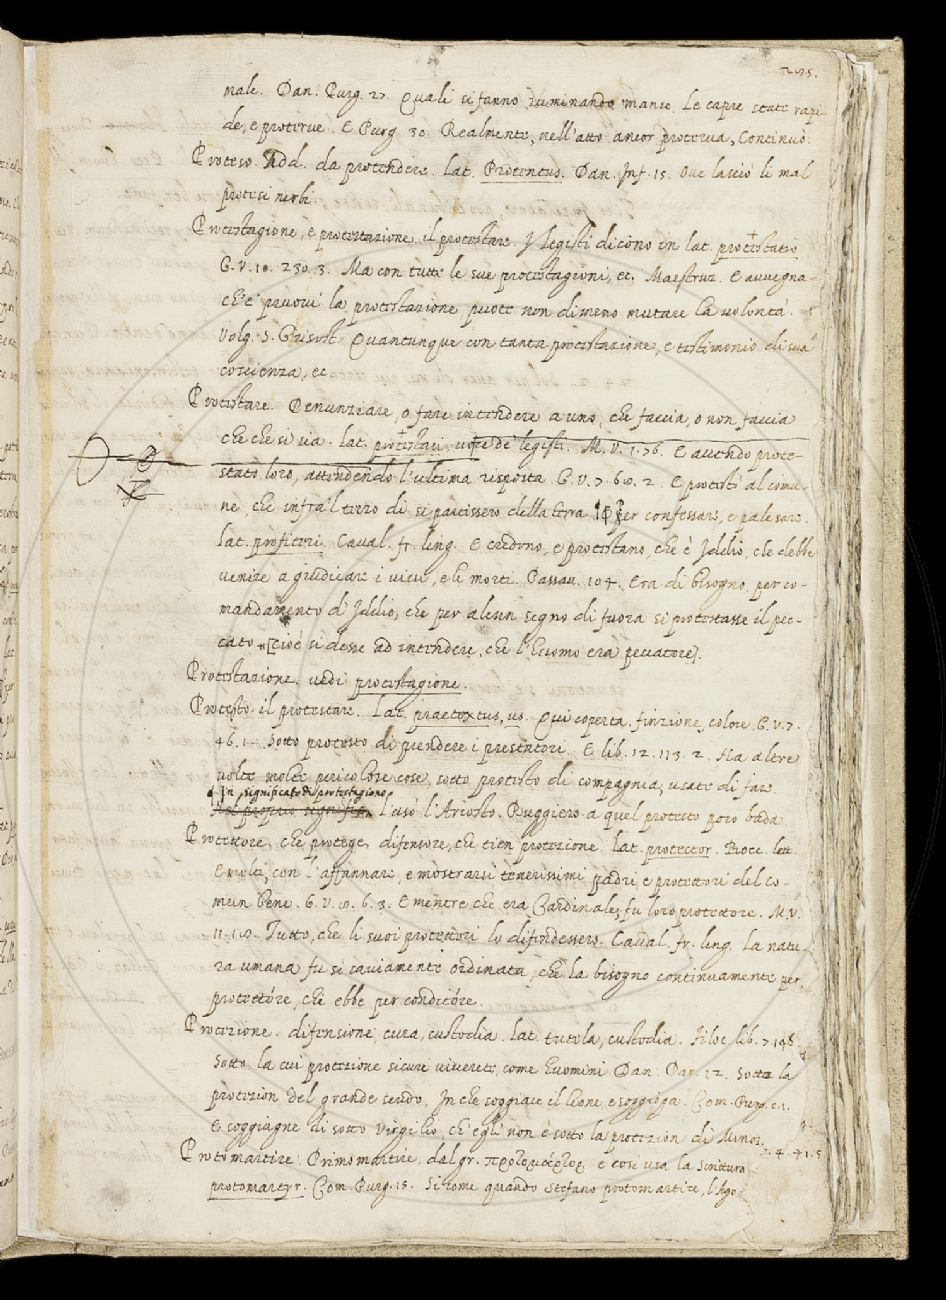 nale. Dan. Purg. 27. Quali si fanno ruminando manse. Le capre state rapi-
de, e proterve. E Purg. 30. Realmente, nell'atto ancor proterva, Continuò.
Proteso. Add. da protendere. lat. Protentus. Dan. Inf. 15. Ove lasciò li mal
protesi nerbi
Protestagione, e protestazione. il protestare. I legisti dicono in lat. protestatio
G. V. 10. 230. 3. Ma con tutte le sue protestagioni, ec. Maestruz. E avvegna-
ch'e' pruovi la protestazione, puote non dimeno mutare la volontà.
Volg. S. Grisost. Quantunque con tanta protestazione, e testimonio di sua
coscienza, ec
Protestare. Denunziare, o fare intendere a uno, che faccia, o non faccia
che che si sia. lat. protestari, voce de' legisti. M. V. 1. 76. E avendo prote-
stato loro, attendendo l'ultima risposta. G. V. 7. 60. 2. E protestò al comu-
ne, che infra'l terzo dì si partissero della terra per confessare, e palesare.
lat. profiteri. Caval. fr. ling. E credono, e protestano, che è Iddio, che debbe
venire a giudicare i vivi, e li morti. Passav. 104. Era di bisogno, per co-
mandamento di Iddio, che per alcun segno di fuora si protestasse il pec-
cato [cioè si desse ad intendere, che l'huomo era peccatore].
Protestazione. vedi protestagione.
Protesto. il protestare. Lat. praetextus, us. Qui coperta, finzione, colore. G. V. 7.
46. 1. Sotto protesto di prendere i prestatori. E lib. 12. 113. 2. Ma altre
volte molte pericolose cose, sotto protesto di compagnia, usate di fare.
In significato di protestagione
Nel proprio signific. l'usò l'Ariosto. Ruggiero a quel protesto poco bada.
Protettore, che protegge, difensore, che tien protezione. lat. protector. Bocc. lett.
E molti, con l'affannare, e mostrarsi tenerissimi padri, e protettori del co-
mun bene. G. V. 10. 6. 3. E mentre che era Cardinale, fu loro protettore. M. V.
11. Tutto, che li suoi protettori lo difendessero. Caval. fr. ling. La natu-
ra umana fu sì saviamente ordinata, che la bisogno continuamente per
protettóre, chi ebbe per conditóre.
Protezione. difensione, cura, custodia. Lat. tutela, custodia. Filoc. lib. 7. 148.
Sotto la cui protezione sicuri viverete, come huomini. Dan. Par. 12. Sotto la
protezion del grande scudo, In che soggiace il lione, e soggioga. Com. Purg. c. 1.
E soggiugne di sotto Virgilio, ch'egli non è sotto la protezion di Minos.
Protomartire. Primo martire, dal gr. πρωτομάρτυρ, e così usa la Scrittura
protomartyr. Com. Purg. 15. Sicome quando Stefano protomartire,